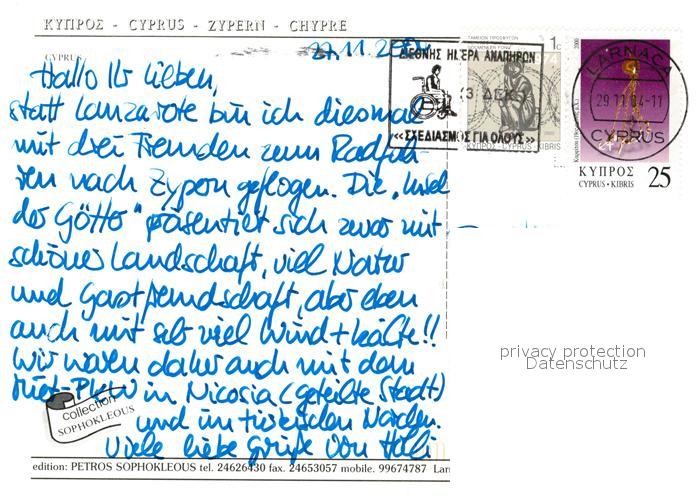 ΚΥΠΡΟΣ - CYPRUS - ZYPERN - CHYPRE
CYPRUS
27.11.2004
Hallo Ihr Lieben,
statt Lanzarote bin ich diesmal
mit drei Freunden zum Radfah-
ren nach Zypern geflogen. Die „Insel
der Götter" präsentiert sich zwar mit
schöner Landschaft, viel Natur
und Gastfreundschaft, aber eben
auch mit sehr viel Wind + Kälte!!
Wir waren daher auch mit dem
Miet-PKW in Nicosia (geteilte Stadt)
und im türkischen Norden.
Viele liebe Grüße von
collection
SOPHOKLEOUS
edition: PETROS SOPHOKLEOUS tel. 24626430 fax. 24653057 mobile. 99674787 Lar
ΔΙΕΘΝΗΣ ΗΜΕΡΑ ΑΝΑΠΗΡΩΝ
3 ΔΕΚ
«ΣΧΕΔΙΑΣΜΟΣ ΓΙΑ ΟΛΟΥΣ»
ΤΑΜΕΙΟΝ ΠΡΟΣΦΥΓΩΝ
1c
74
ΚΥΠΡΟΣ·CYPRUS·KIBRIS
2000
LARNACA
29.11.04-11
CYPRUS
ΚΥΠΡΟΣ
CYPRUS • KIBRIS
25
privacy protection
Datenschutz